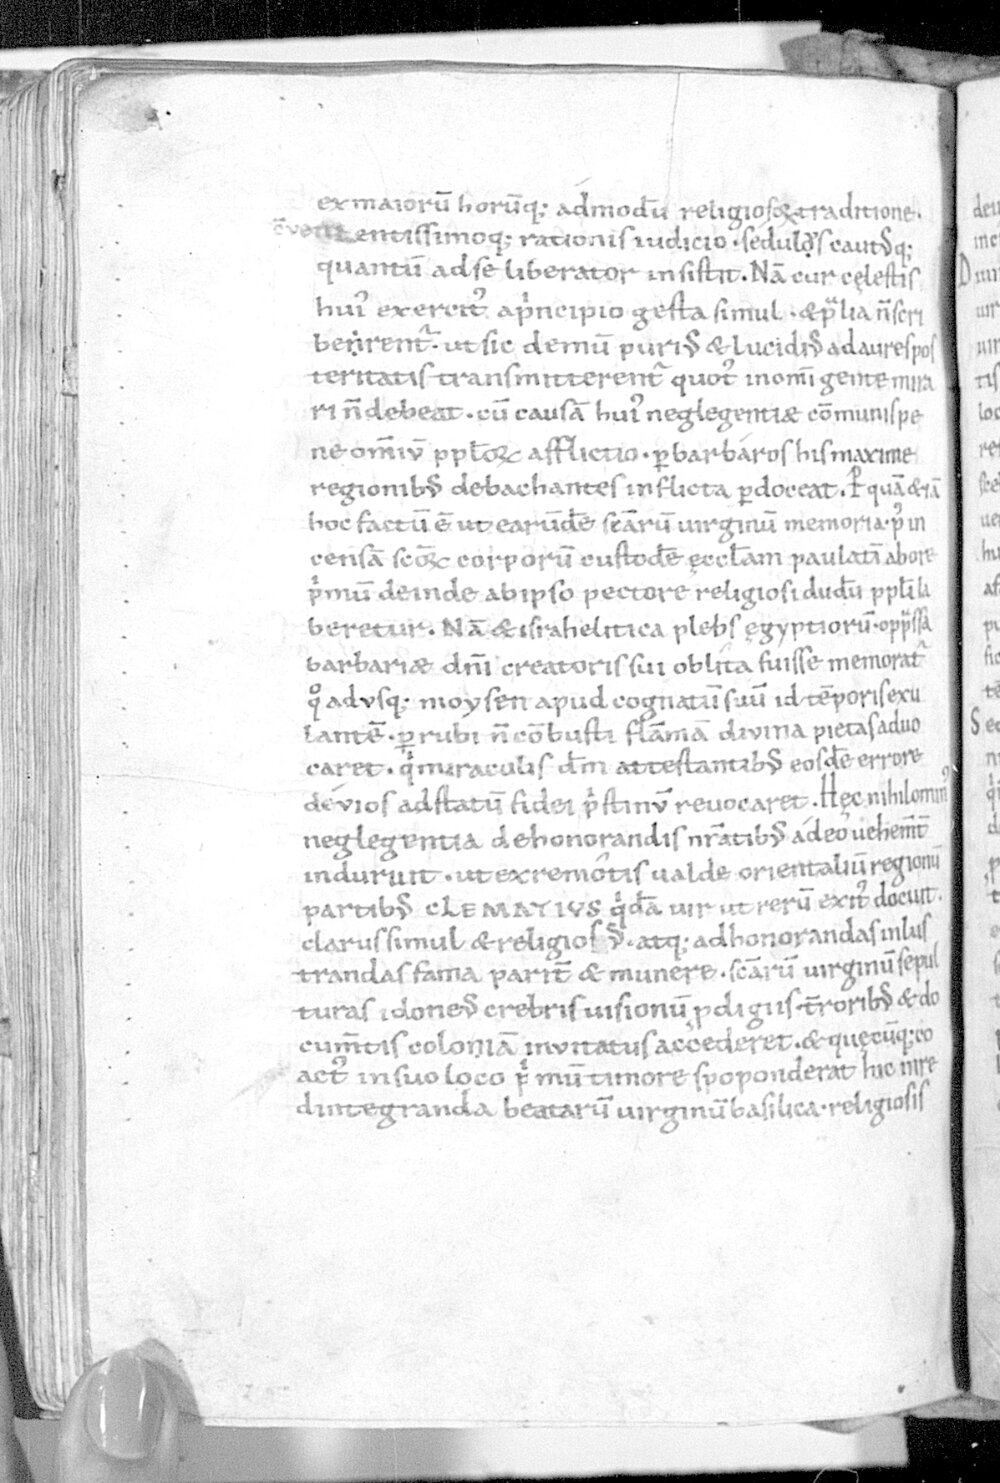 ex maiorū horūq; admodū religiosoꝝ traditione.
entissimoq; rationis iudicio. sedulo
quantū ad se liberator insistit. Nā cur cęlestis
hui᷒ exercit᷒ aprincipio gesta simul. & p̄lia n̄ scri
berent᷑. ut sic demū puri᷒ & lucidi᷒ ad aures pos
teritatis transmitterent᷑ quot᷒ in om̄i gente mira
ri n̄ debeat. cū causā hui᷒ neglegentiæ cōmunis pe
ne om̄iū ppl̄oꝝ afflictio. ꝑ barbáros his maxime
regionib᷒ debachantes inflicta ꝑdoceat. quā & iā
hoc factū ē ut earūdē scārū uirginū memoria. p᷒ in
censā scōꝝ corporū custodē ęccl̄am paulatī ab ore
pͥmū deinde ab ipso pectore religiosi dudū ppl̄i la
beretur. Nā & israhelitica plebs ęgyptiorū. opp̄ssa
barbariæ dn̄i creatoris sui oblita fuisse memorat᷑
qͦ adusq; moysen apud cognatū suū id tēporis exu
lantē. ꝑ rubi n̄ cōbusti flāmā diuina pietas aduo
caret. qͥ miraculis dm̄ attestantib᷒ eosdē errore
déuios ad statū fidei pͥstinū reuocaret. Hęc nihilomin᷒
neglegentia de honorandis nr̄atib᷒ ádeo uehem̄t̄
induruit. ut ex remotis ualde orientaliū regionū
partib᷒ CLEMATIUS qͥdā uir ut rerū exit᷒ docuit.
clarus simul & religios᷒. atq; ad honorandas inlus
trandas fama parit̄ & munere. scārū uirginū sepul
turas idone᷒ crebris uisionū ꝓdigiis. t̄rorib᷒ & do
cum̄tis coloniā inuitatus accederet. & quęcūq; co
act᷒ in suo loco pͥmū timore spoponderat huc in re
dintegranda beatarū uirginū basilica. religiosis